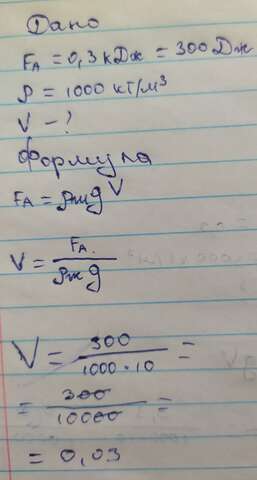 Дано
FА = 0,3 кДж = 300 Дж
ρ = 1000 кг/м³
V - ?
Формула
FА = ρж g V
V = FА / ρж g
V = 300 / 1000 · 10 =
= 300 / 10000 =
= 0,03